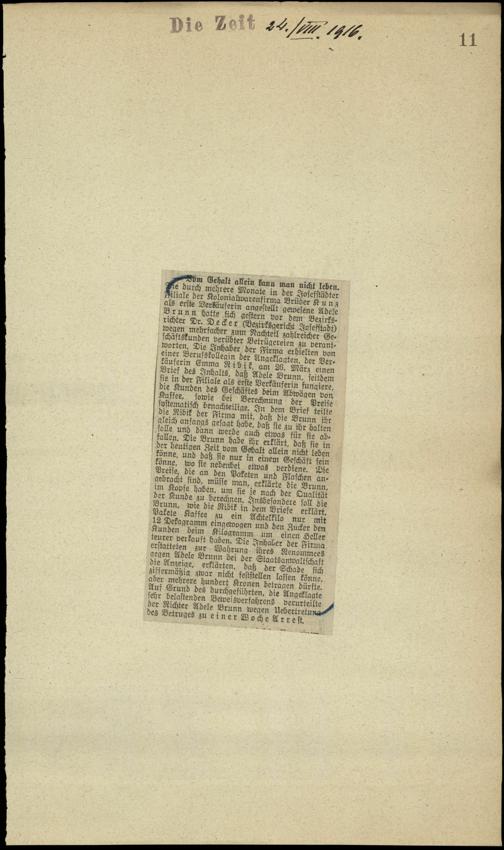 Die Zeit 24./VIII. 1916.
11
Vom Gehalt allein kann man nicht leben.
Die durch mehrere Monate in der Josefstädter
Filiale der Kolonialwarenfirma Brüder Kunz
als erste Verkäuferin angestellt gewesene Adele
Brunn hatte sich gestern vor dem Bezirks-
richter Dr. Decker (Bezirksgericht Josefstadt)
wegen mehrfacher zum Nachteil zahlreicher Ge-
schäftskunden verübter Betrügereien zu verant-
worten. Die Inhaber der Firma erhielten von
einer Berufskollegin der Angeklagten, der Ver-
käuferin Emma Ribik, am 26. März einen
Brief des Inhalts, daß Adele Brunn, seitdem
sie in der Filiale als erste Verkäuferin fungiere,
die Kunden des Geschäftes beim Abwägen von
Kaffee, sowie bei Berechnung der Preise
systematisch benachteilige. In dem Brief teilte
die Ribik der Firma mit, daß die Brunn ihr
gleich anfangs gesagt habe, daß sie zu ihr halten
solle und dann werde auch etwas für sie ab-
fallen. Die Brunn habe ihr erklärt, daß sie in
der heutigen Zeit vom Gehalt allein nicht leben
könne, und daß sie nur in einem Geschäft sein
könne, wo sie nebenbei etwas verdiene. Die
Preise, die an den Paketen und Flaschen an-
gebracht sind, müsse man, erklärte die Brunn,
im Kopfe haben, um sie je nach der Qualität
der Kunde zu berechnen. Insbesondere soll die
Brunn, wie die Ribik in dem Briefe erklärt,
Pakete Kaffee zu ein Achtelkilo nur mit
12 Dekagramm eingewogen und den Zucker den
Kunden beim Kilogramm um einen Heller
teurer verkauft haben. Die Inhaber der Firma
erstatteten zur Wahrung ihres Renommees
gegen Adele Brunn bei der Staatsanwaltschaft
die Anzeige, erklärten, daß der Schade sich
ziffermäßig zwar nicht feststellen lassen könne,
aber mehrere hundert Kronen betragen dürfte.
Auf Grund des durchgeführten, die Angeklagte
sehr belastenden Beweisverfahrens verurteilte
der Richter Adele Brunn wegen Uebertretung
des Betruges zu einer Woche Arrest.